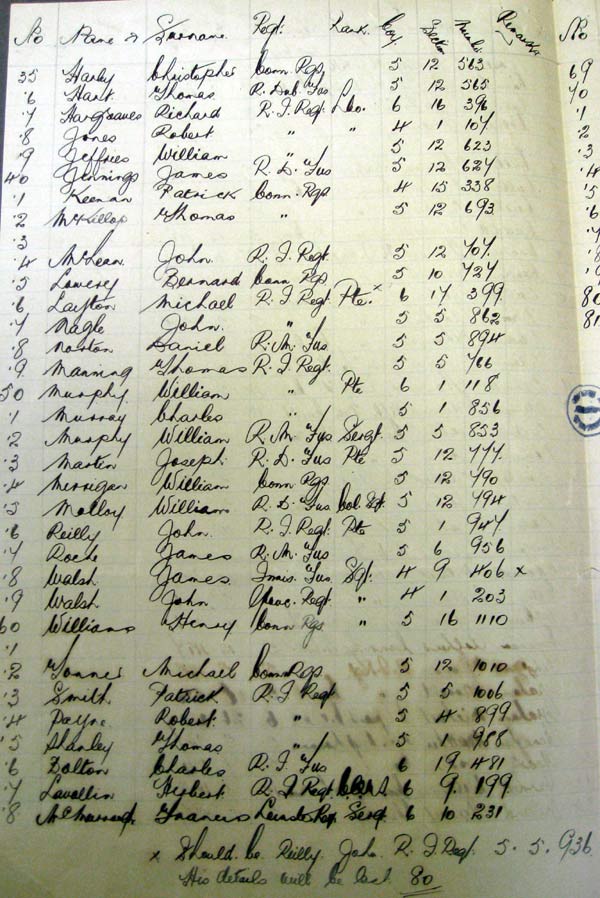 No Name & Surname. Regt. Rank. Coy. Section Number Remarks No
35 Harley Christopher Conn Rgs 5 12 563 69
.6 Hart Thomas R. Dub. Fus 5 12 565 70
.7 Hargreaves Richard R. I. Regt. 6 16 396 .1
.8 Jones Robert " " 4 1 107 .2
.9 Jeffries William " 5 12 623 .3
40 Jennings James R. D. Fus 5 12 627 .4
.1 Keenan Patrick Conn. Rgs 4 15 338 .5
.2 McKillop Thomas " 5 12 693
.3
.4 McLean. John. R. I. Regt. 5 12 707.
.5 Lowery Bernard Conn Rgs 5 10 727
.6 Layton Michael R. I. Regt Pte. x 6 17 399 80
.7 Nagle John. " 5 5 862 81
.8 Norton Daniel R. M. Fus 5 5 894
.9 Manning Thomas R. I. Regt. 5 5 766
50 Murphy. William " Pte 6 1 118
.1 Murray Charles " 5 1 856
.2 Murphy William R. M. Fus Sergt. 5 5 853
.3 Martin Joseph. R. D. Fus Pte 5 12 777.
.4 Merrigan William Conn Rgs 5 12 790
.5 Molloy William R. D. Fus Col. Sgt. 5 12 794
.6 Reilly John. R. I. Regt Pte 5 1 947
.7 Roche James R. M. Fus 5 6 956
.8 Walsh. James. Innis. Fus Sgt. 4 9 406 x
.9 Walsh. John Regt " 4 1 203
60 Williams Henry Conn Rgs " 5 16 1110
.1
.2 Michael Conn Rgs 5 12 1010
.3 Smith Patrick R. I Regt 5 5 1006
.4 Payne Robert. " 5 4 899
.5 Stanley Thomas " 5 1 988
.6 Dalton Charles R. I. Fus 6 19 481
.7 Lavallin R. I. Regt 6 9. 199
.8 Francis Leinster Reg Sergt 6 10 231
x Should be Reilly John R. I Regt. 5. 5. 936
His details will be last 80